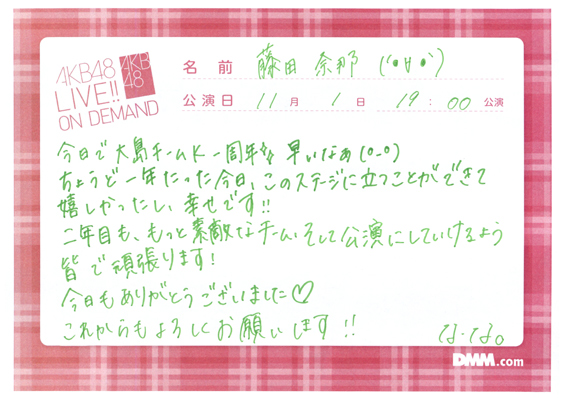 AKB48
LIVE!!
ON DEMAND
AKB
48
名前 藤田 奈那 ('●∀●')
公演日 11月 1日 19:00公演
今日で大島チームK一周年 早いなぁ(o_o)
ちょうど一年たった今日、このステージに立つことができて
嬉しかったし、幸せです!!
二年目も、もっと素敵なチーム、そして公演にしていけるよう
皆で頑張ります!
今日もありがとうございました♡
これからもよろしくお願いします!!
な・な。
DMM.com